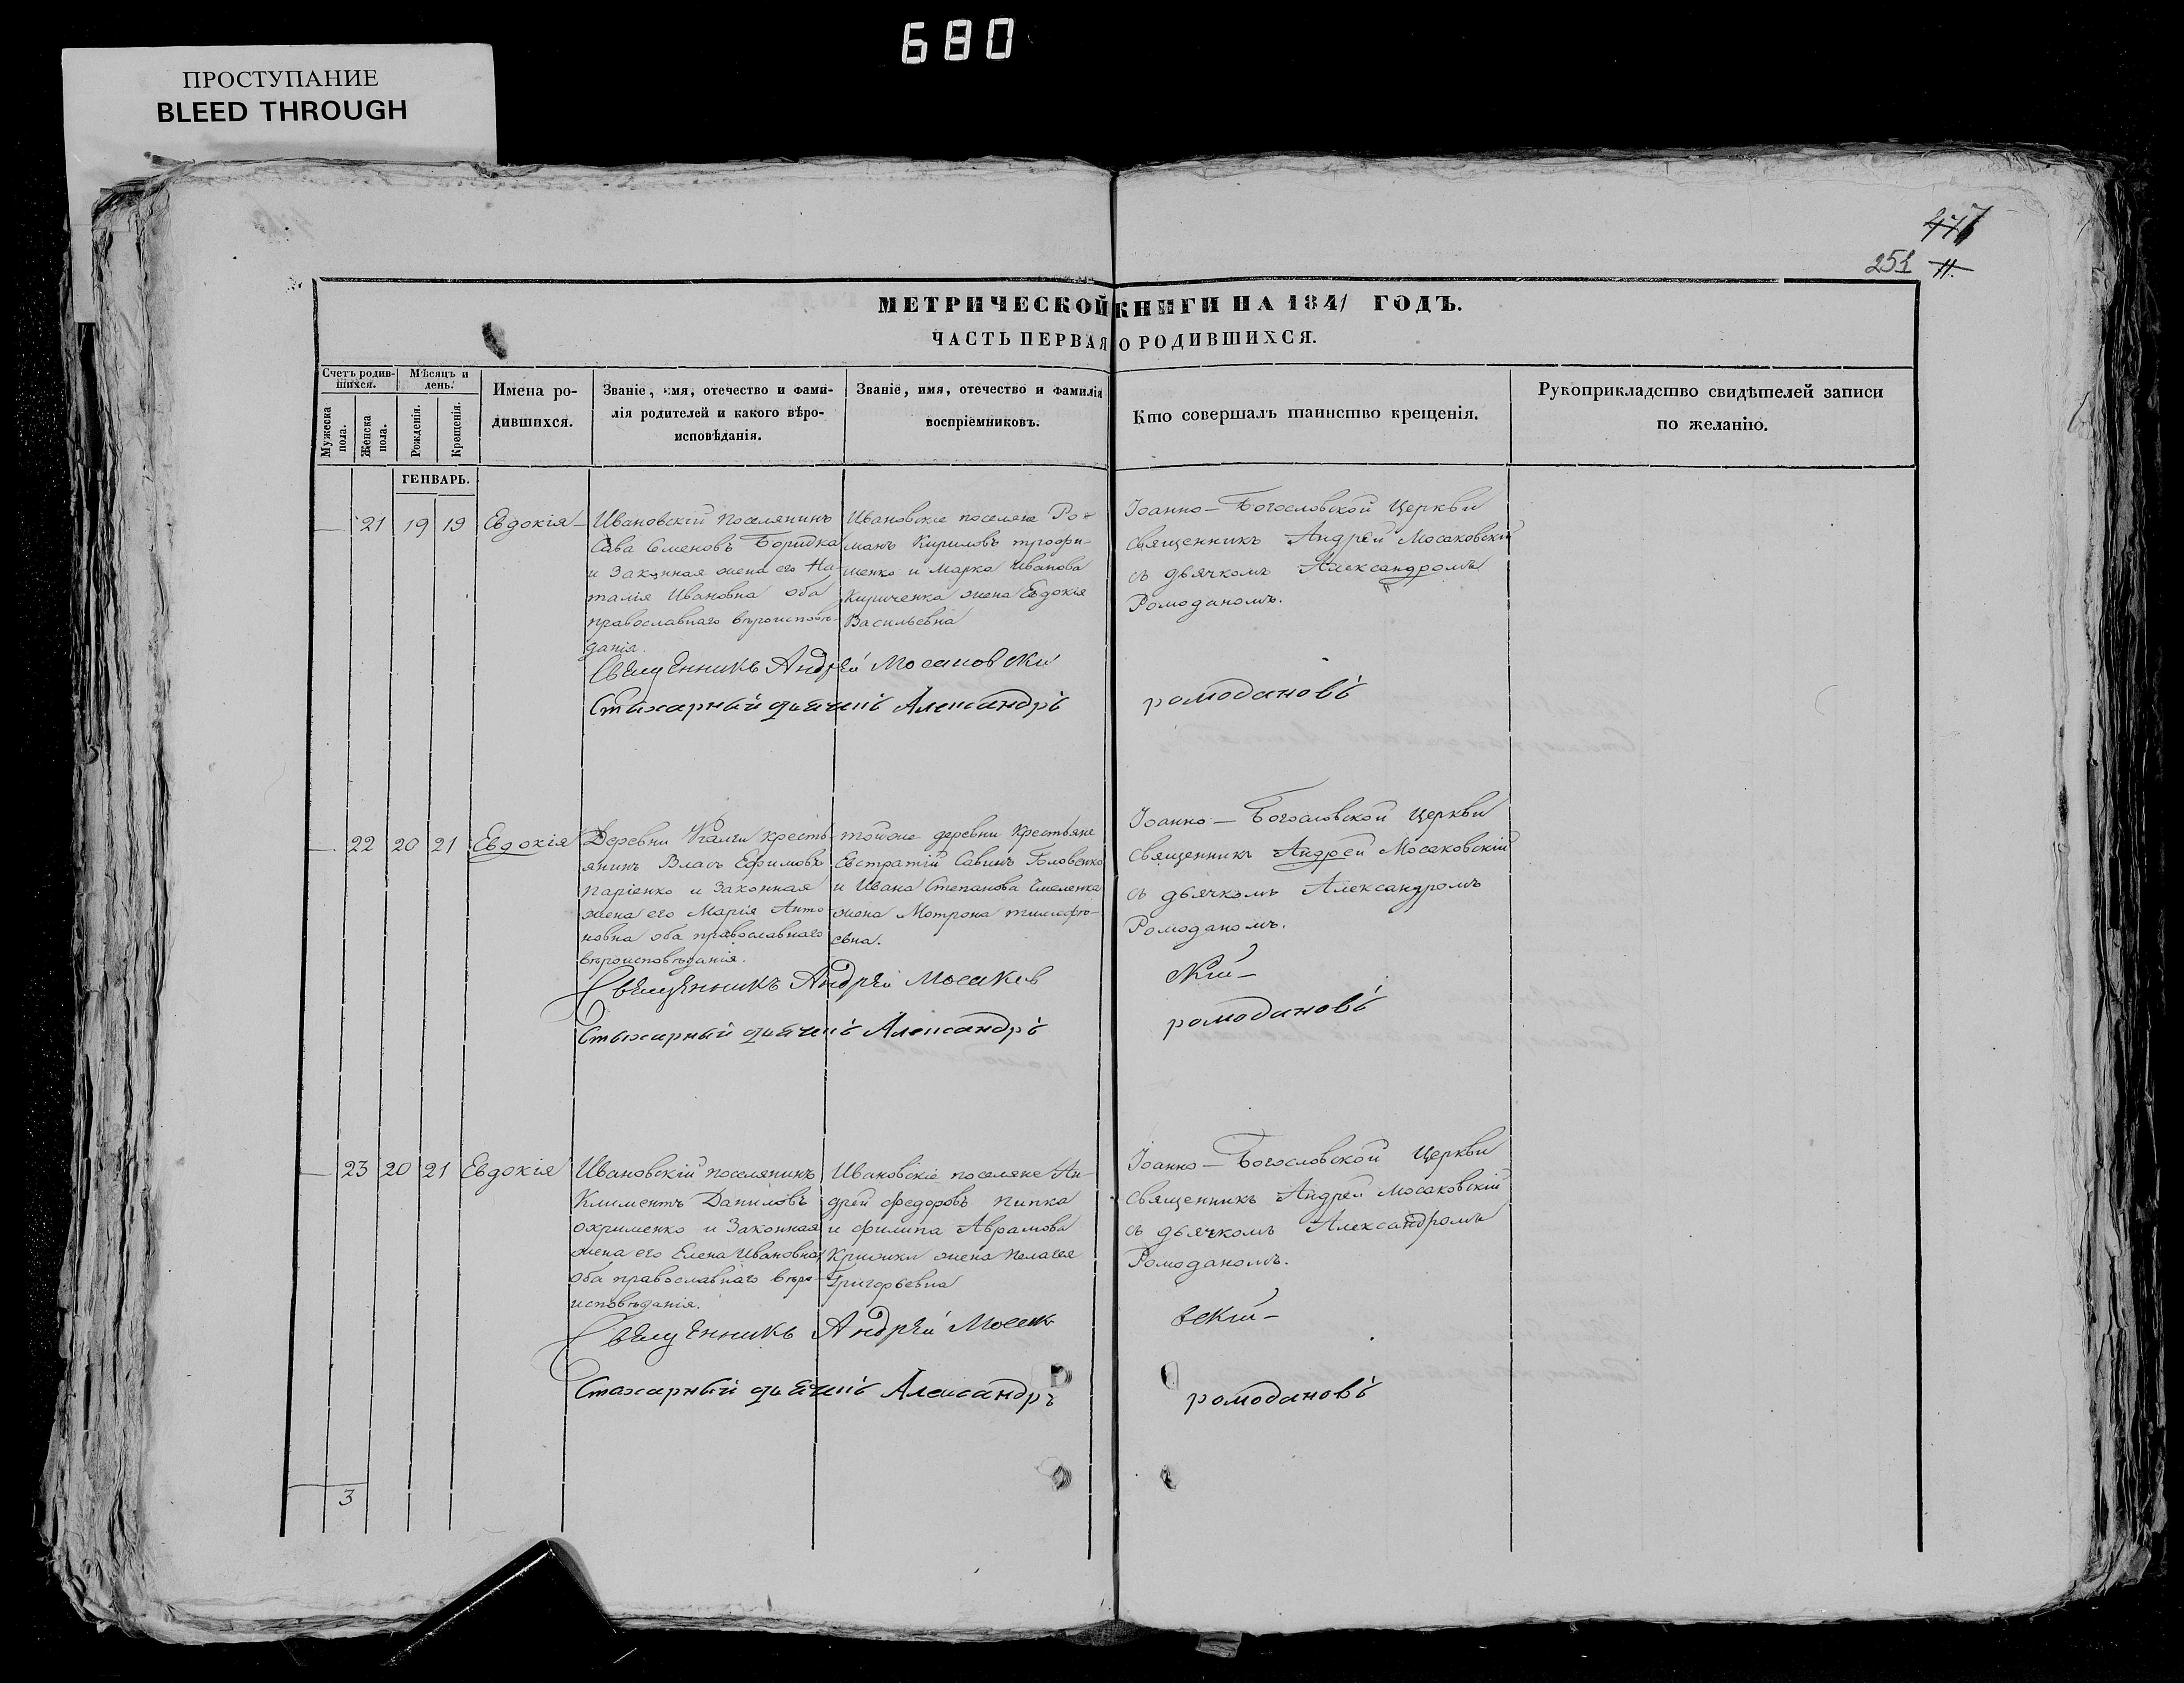 680
ПРОСТУПАНИЕ
BLEED THROUGH
477
11.
МЕТРИЧЕСКОЙ КНИГИ НА 1841 ГОДЪ.
ЧАСТЬ ПЕРВАЯ О РОДИВШИХСЯ.
Счетъ родив-
шихся.
Мѣсяцъ и
день.
Мужеска
пола.
Женска
пола.
Рожденія.
Крещенія.
Имена ро-
дившихся.
Званіе, имя, отечество и фами-
лія родителей и какого вѣро-
исповѣданія.
Званіе, имя, отечество и фамилія
воспріемниковъ.
Кто совершалъ таинство крещенія.
Рукоприкладство свидѣтелей записи
по желанію.
ГЕНВАРЬ.
21 19 19 Евдокія
Ивановскій поселянинъ
Сава Семеновъ Боридка
и Законная жена его На-
талія Ивановна оба
православнаго вѣроисповѣ-
данія.
Ивановскіе поселяне Ро-
манъ Кириловъ трофи-
менко и Марка Иванова
Кириченка жена Евдокія
Васильевна
Іоанно-Богословской Церкви
священникъ Андрей Мосаковскій
съ дьячкомъ Александромъ
Ромоданомъ.
Священникъ Андрей Мосаковскій
Стихарный дьячикъ Александръ ромодановъ
22 20 21 Евдокія
Деревни кресть-
янинъ Власъ Ефимовъ
Паріенко и Законная
жена его Марія Анто-
новна оба православнаго
вѣроисповѣданія.
тойже деревни крестьяне
Евстратій Савинъ Головенко
и Ивана Степанова
жена Мотрона тимофѣ-
евна.
Іоанно-Богословской Церкви
священникъ Андрей Мосаковскій
съ дьячкомъ Александромъ
Ромоданомъ.
Священникъ Андрей Мосаковскій
Стихарный дьячикъ Александръ ромодановъ
23 20 21 Евдокія
Ивановскій поселянинъ
Климентъ Даниловъ
охрименко и Законная
жена его Елена Ивановна
оба православнаго вѣро-
исповѣданія.
Ивановскіе поселяне Ан-
дрей Федоровъ Пипка
и Филипа Аврамова
Крижки жена Пелагея
Григорьевна
Іоанно-Богословской Церкви
священникъ Андрей Мосаковскій
съ дьячкомъ Александромъ
Ромоданомъ.
Священникъ Андрей Мосаковскій
Стихарный дьячикъ Александръ ромодановъ
3